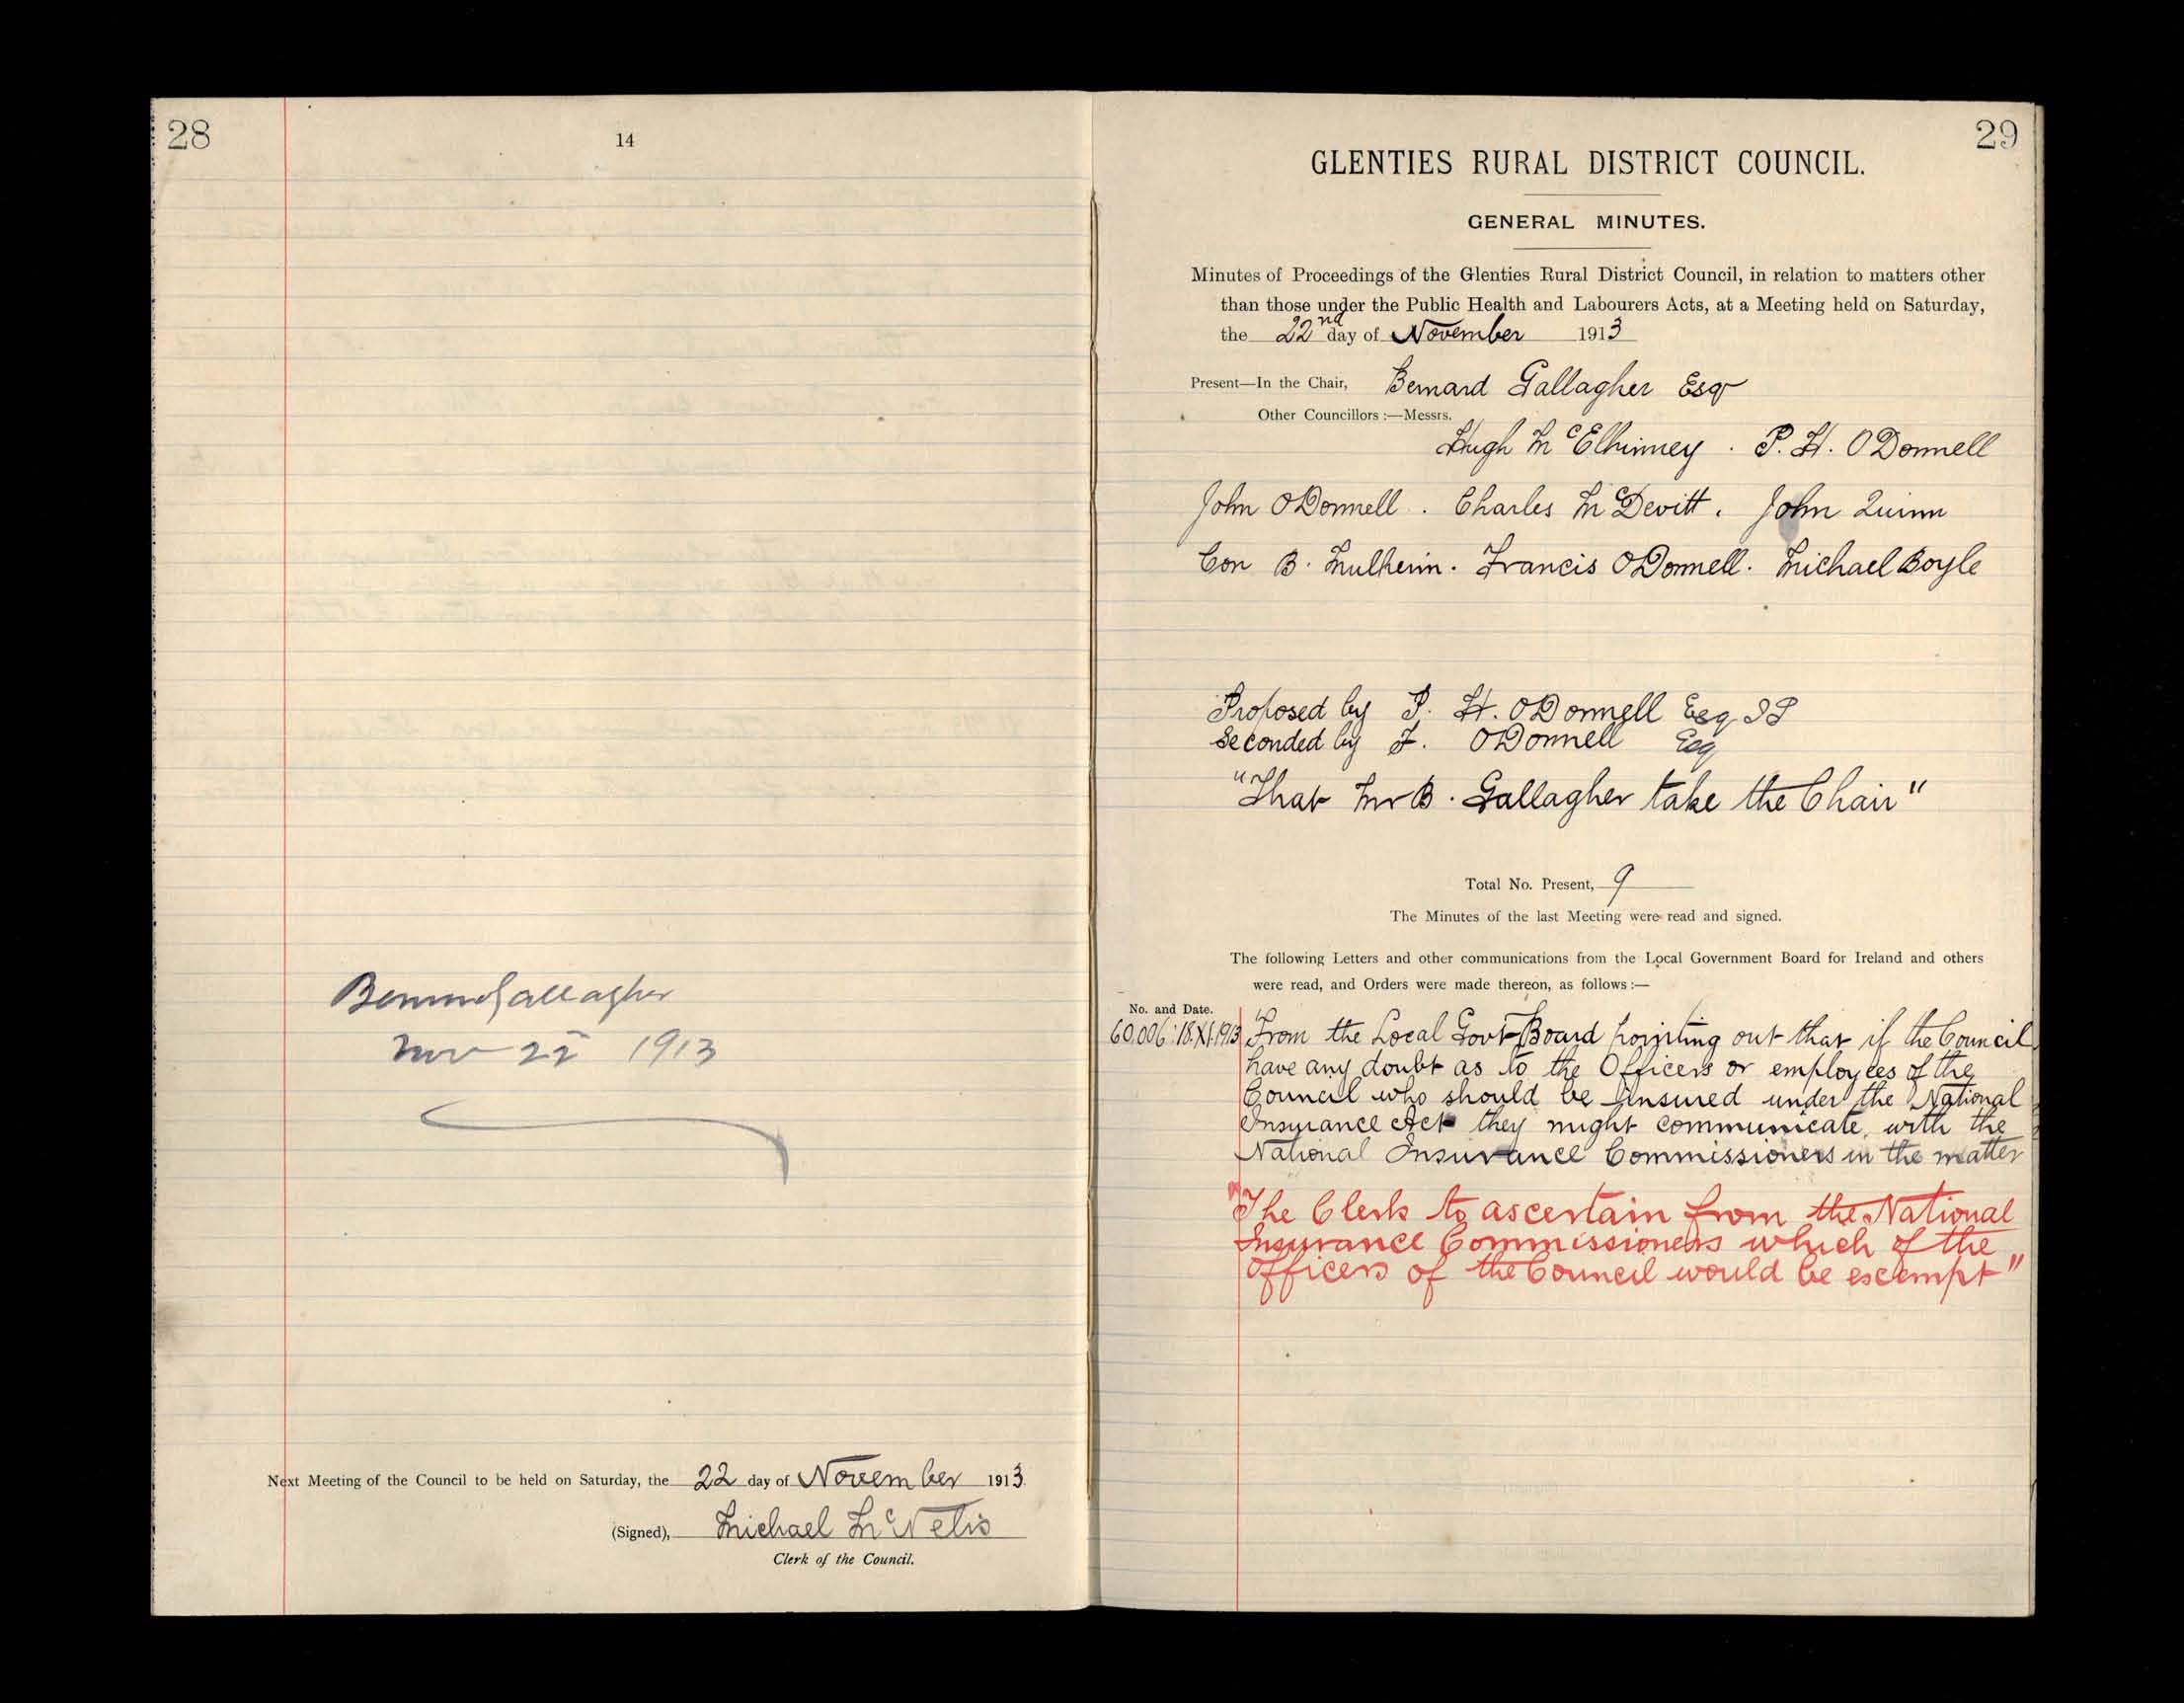 28
14
Bernard Gallagher
Nov 22 1913
Next Meeting of the Council to be held on Saturday, the 22 day of November 1913.
(Signed), Michael McNelis
Clerk of the Council.
29
GLENTIES RURAL DISTRICT COUNCIL.
GENERAL MINUTES.
Minutes of Proceedings of the Glenties Rural District Council, in relation to matters other
than those under the Public Health and Labourers Acts, at a Meeting held on Saturday,
the 22nd day of November 1913
Present—In the Chair, Bernard Gallagher Esqr
Other Councillors :—Messrs.
Hugh McElhinney . P. H. O Donnell
John O Donnell . Charles McDevitt . John Quinn
Con B. Mulhern . Francis O Donnell . Michael Boyle
Proposed by P. H. O Donnell Esq JP
Seconded by F. O Donnell Esq
"That Mr B. Gallagher take the Chair"
Total No. Present, 9
The Minutes of the last Meeting were read and signed.
The following Letters and other communications from the Local Government Board for Ireland and others
were read, and Orders were made thereon, as follows :—
No. and Date.
60,006:18.XI.1913 From the Local Govt Board pointing out that if the Council
have any doubt as to the Officers or employees of the
Council who should be insured under the National
Insurance Act they might communicate with the
National Insurance Commissioners in the matter
"The Clerk to ascertain from the National
Insurance Commissioners which of the
Officers of the Council would be exempt"